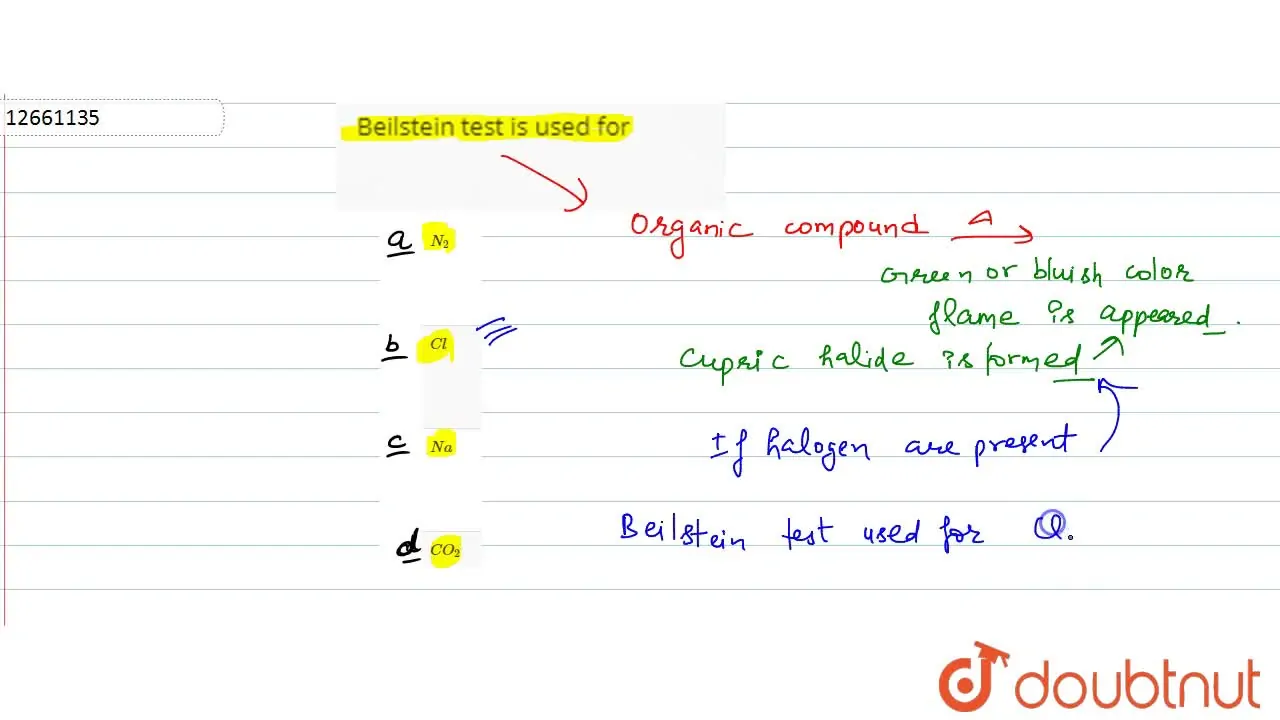 12661135
Beilstein test is used for
a N₂
Organic compound Δ
Green or bluish color
flame is appeared.
b Cl
Cupric halide is formed
c Na
If halogen are present
Beilstein test used for Cl.
d CO₂
doubtnut